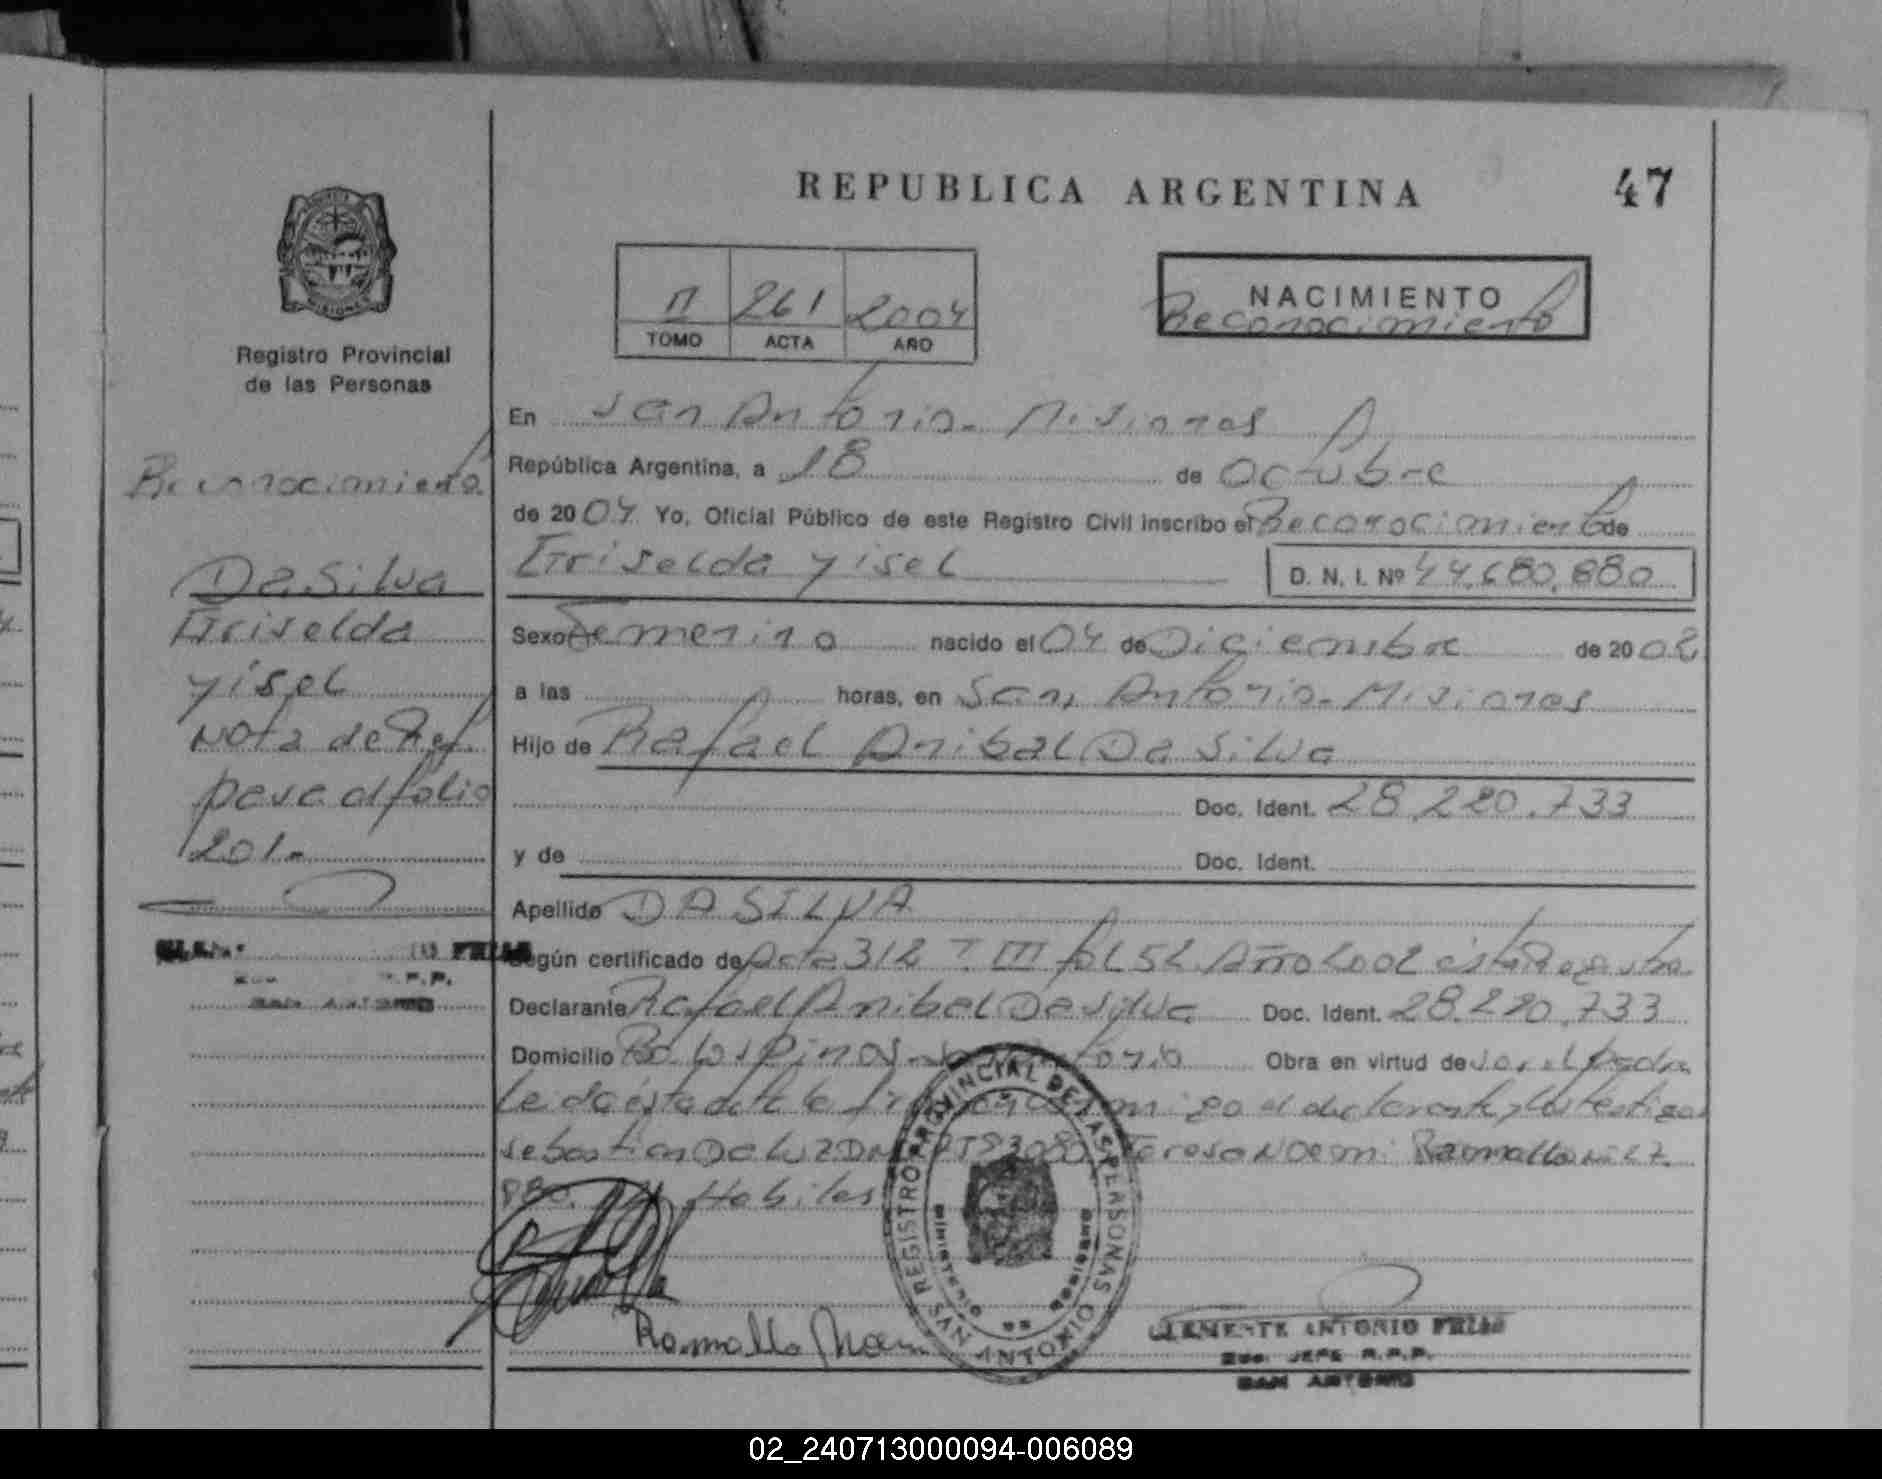 REPUBLICA ARGENTINA
47
II 261 2004
TOMO ACTA AÑO
NACIMIENTO
Reconocimiento
Registro Provincial
de las Personas
Reconocimiento
Da Silva
Griselda
Yisel
Nota de Ref.
pasa al folio
201.-
SAN ANTONIO
En San Antonio - Misiones
República Argentina, a 18 de Octubre
de 2004 Yo, Oficial Público de este Registro Civil inscribo el Reconocimiento de
Griselda Yisel D. N. I. Nº 44.680.880
Sexo Femenino nacido el 04 de Diciembre de 2002
a las horas, en San Antonio - Misiones
Hijo de Rafael Anibal Da Silva
Doc. Ident. 28.220.733
y de Doc. Ident.
Apellido DA SILVA
Según certificado de Acta 312 T III fol 52 Año 2002 ésta
Declarante Rafael Anibal Da Silva Doc. Ident. 28.220.733
Domicilio Obra en virtud de ser el padre
Leida ésta acta la firman conmigo el declarante y los testigos
Sebastian Da Luz DNI Teresa Noemi Ramallo
Habiles
REGISTRO PROVINCIAL DE LAS PERSONAS
Ramallo Noemi
CLEMENTE ANTONIO
JEFE R.P.P.
SAN ANTONIO
02_240713000094-006089